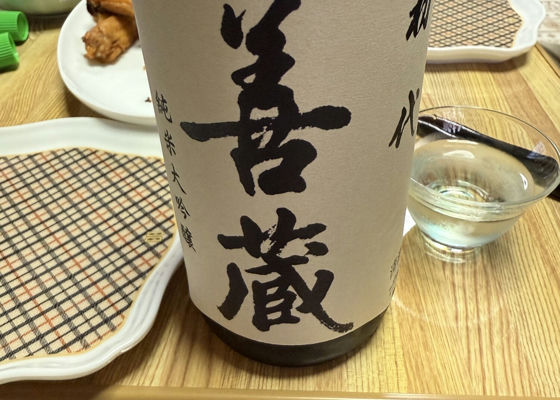 初代
善蔵
純米大吟醸